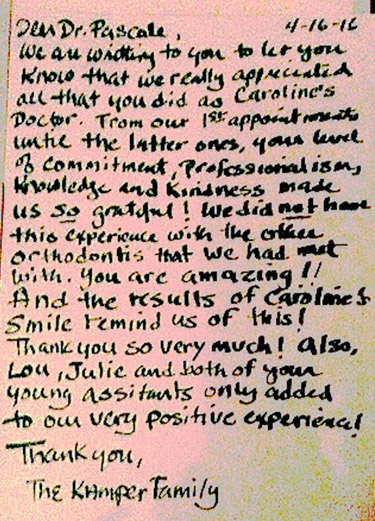 Dear Dr. Pascale, 4-16-16
We are writing to you to let you
Know that we really appreciated
all that you did as Caroline's
Doctor. From our 1st appointments
until the latter ones, your level
of commitment, Professionalism,
Knowledge and Kindness made
us so grateful! We did not have
this experience with the other
orthodontis that we had met
with. You are amazing!!
And the results of Caroline's
Smile remind us of this!
Thank you so very much! Also,
Lou, Julie and both of your
young assitants only added
to our very positive experience!
Thank you,
The Family